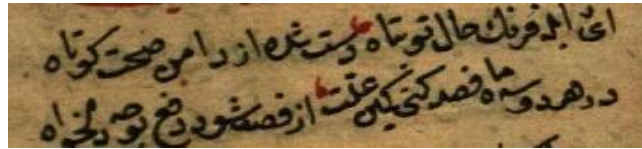 ای ابله فرنك حال تو تباه دست شده از دامن صحت کوتاه
در هر دو سه ماه فصد کنی کین علت از فصد شود دفع بوجه دلخواه